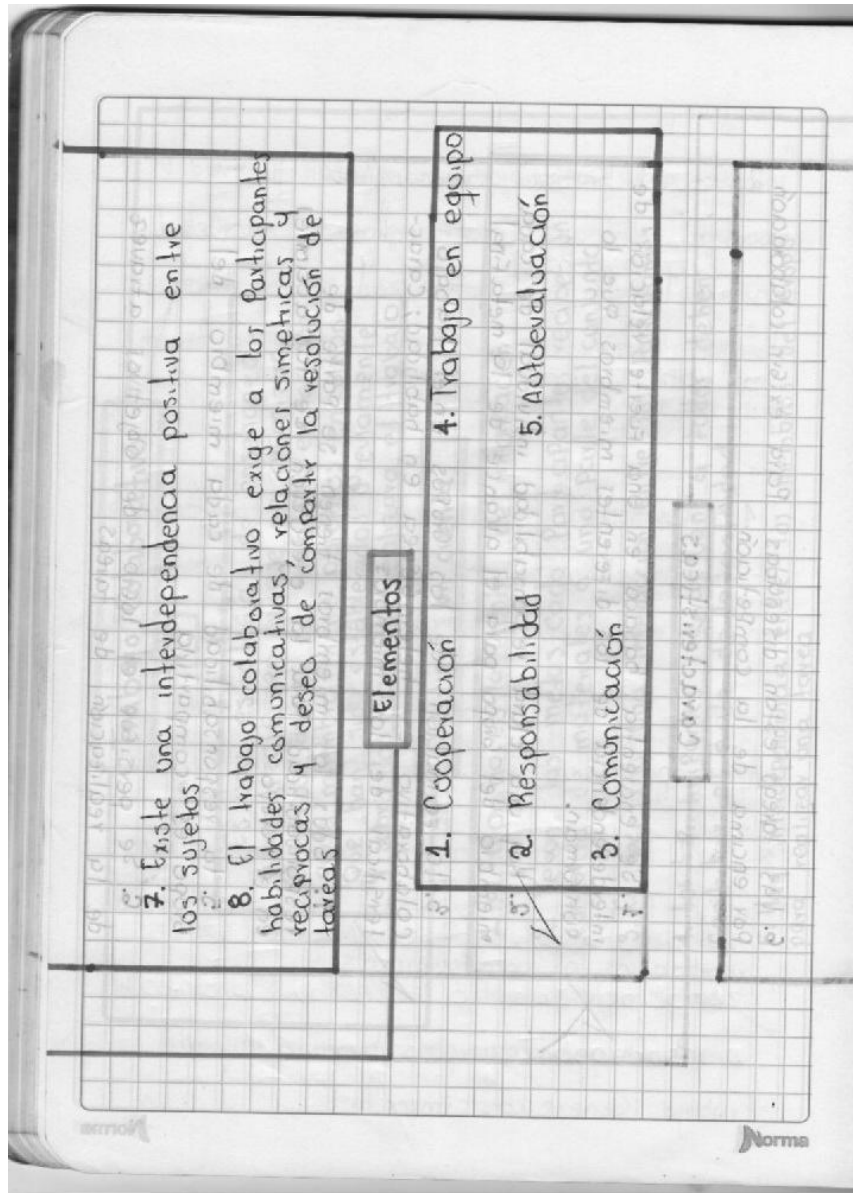 7. Existe una interdependencia positiva entre
los sujetos
8. El trabajo colaborativo exige a los Participantes
habilidades comunicativas, relaciones simetricas y
reciprocas y deseo de compartir la resolución de
tareas
Elementos
1. Cooperación
2. Responsabilidad
3. Comunicación
4. Trabajo en equipo
5. Autoevaluación
Norma